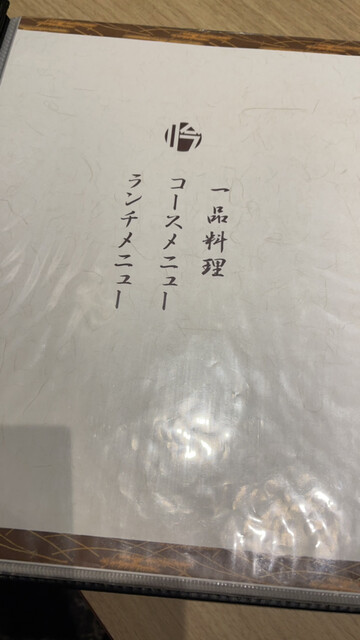 一品料理
コースメニュー
ランチメニュー